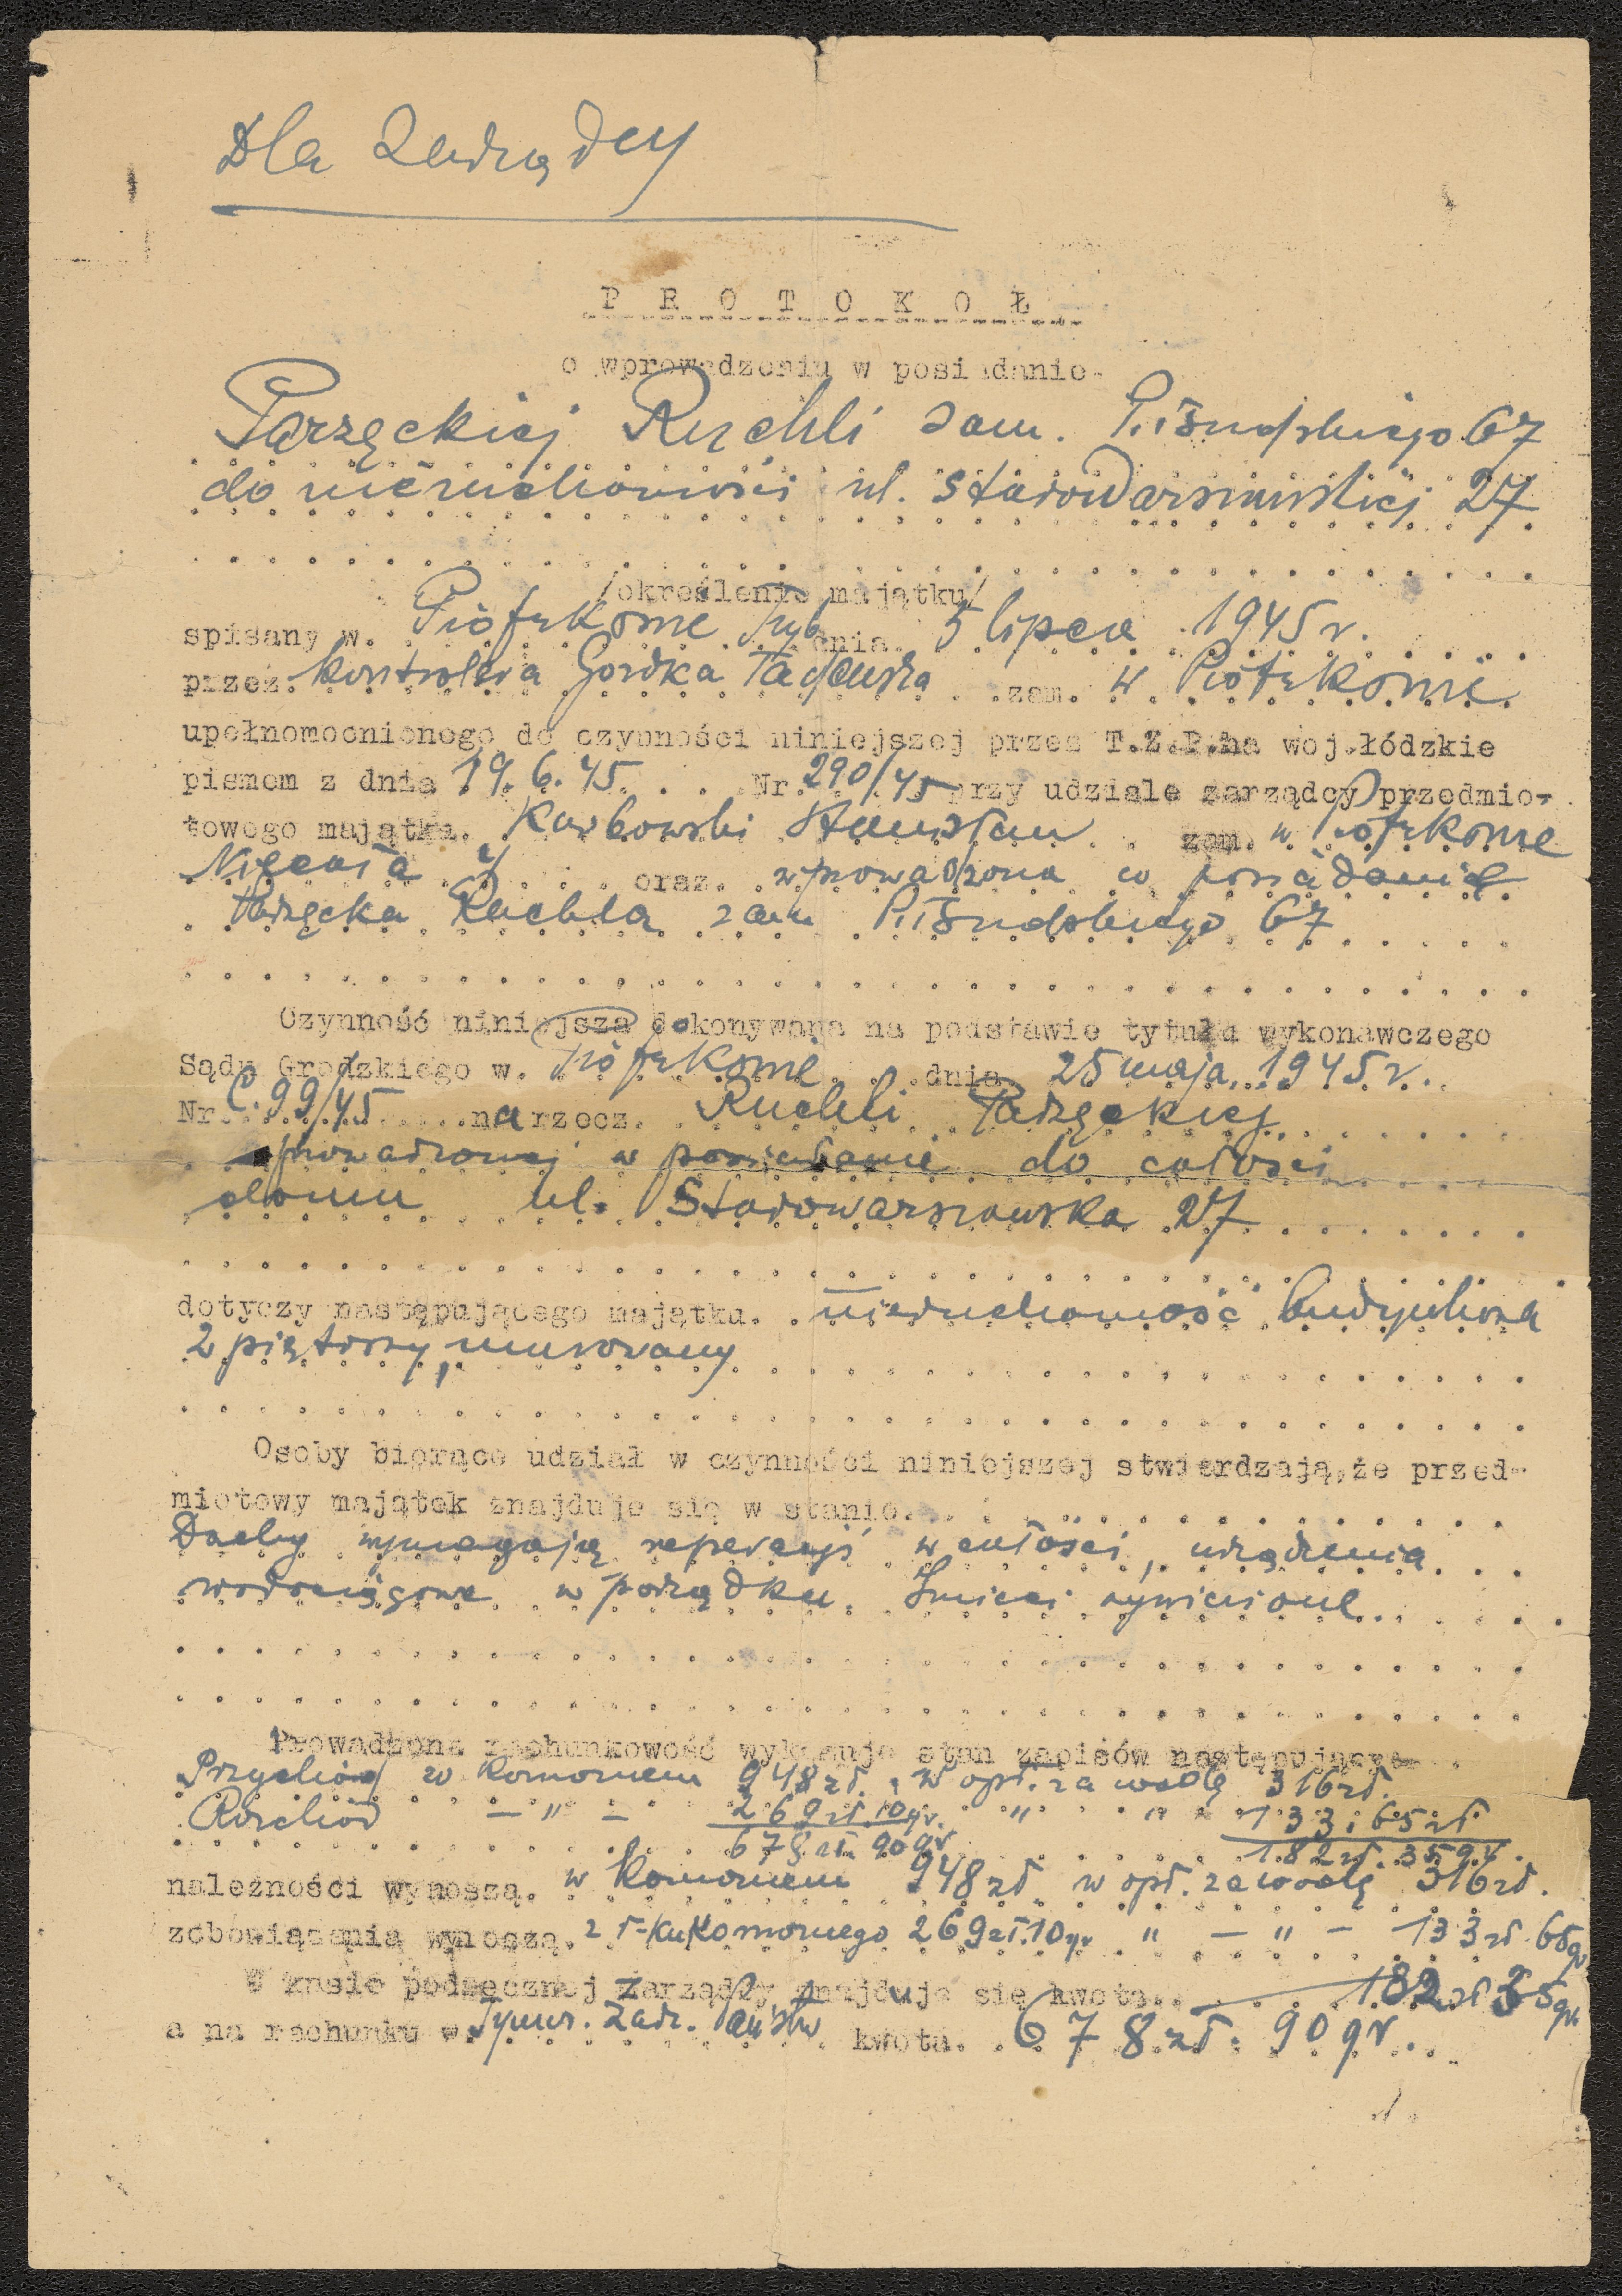 Dla Zarządcy
P R O T O K O Ł
o wprowadzeniu w posiadanie
Parzęckiej Ruchli zam. Piłsudskiego 67
do nieruchomości ul. Starowarszawskiej 27
/określenie majątku/
spisany w. Piotrkowie Tryb dnia 5 lipca 1945 r.
przez. kontrolera Gorzka Tadeusza zam. w Piotrkowie
upełnomocnionego do czynności niniejszej przez T.Z.P.na woj.łódzkie
pismem z dnia 19. 6. 45 Nr. 290/45 przy udziale zarządcy przedmio-
towego majątku. Karbowski Stanisław zam. w Piotrkowie
oraz. wprowadzona w posiadanie
Parzęcka Ruchla zam Piłsudskiego 67
Czynność niniejsza dokonywana na podstawie tytułu wykonawczego
Sądu Grodzkiego w. Piotrkowie dnia 25 maja 1945 r.
Nr. C. 99/45 na rzecz. Ruchli Parzęckiej
prowadzonej w posiadanie do całości
domu ul. Starowarszawska 27
dotyczy następującego majątku. nieruchomość
2 piętrowy, murowany
Osoby biorące udział w czynności niniejszej stwierdzają,że przed-
miotowy majątek znajduje się w stanie.
Dachy wymagają reperacji w całości, urządzenia
wodociągowe w porządku. Śmieci wywiezione.
Prowadzona rachunkowość wykazuje stan zapisów następujący
Przychód w komornem 948 zł. w opł. za wodę 316 zł.
Rozchód — " — 269 zł 10 gr. " " 133.65 zł
678 zł. 90 gr. 182 zł. 35 gr.
należności wynoszą. w komornem 948 zł w opł. za wodę 316 zł.
zobowiązania wynoszą. z r-ku Komornego 269 zł. 10 gr " — " — 133 zł 65 gr
W kasie podręcznej zarządcy znajduje się kwota. 182 zł 35 gr.
a na rachunku w. Tymcz. Zarz. Państw kwota. 678 zł. 90 gr.